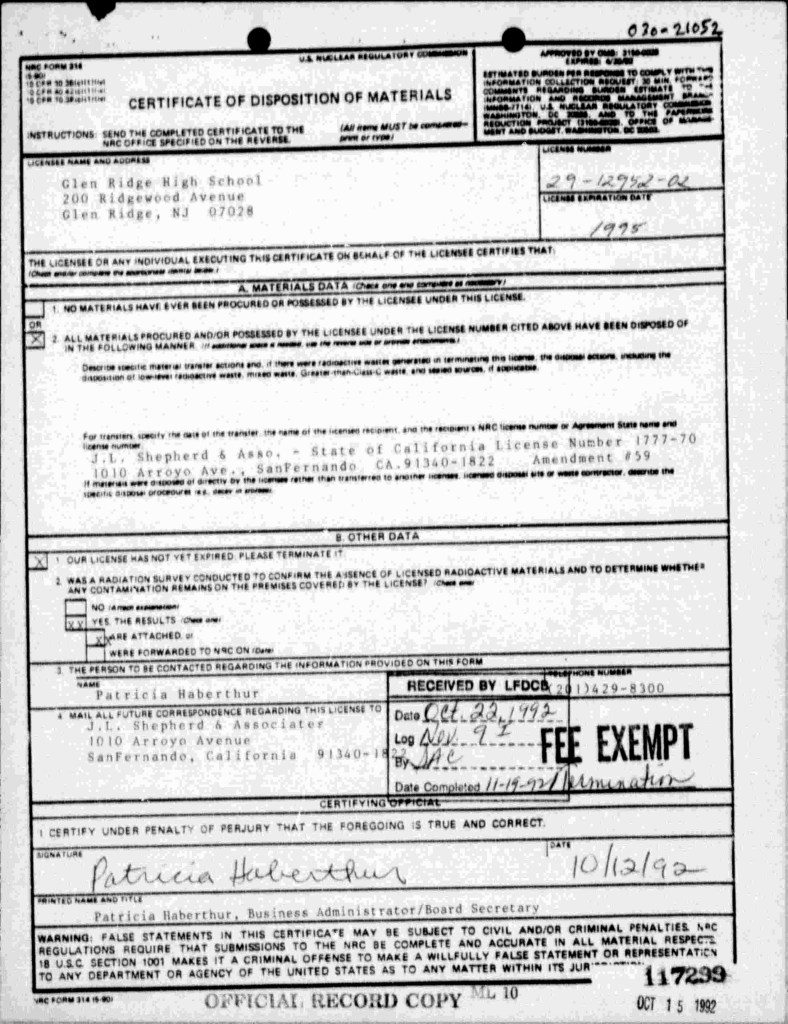 030-21052
NRC FORM 314
(5-90)
U.S. NUCLEAR REGULATORY COMMISSION
CERTIFICATE OF DISPOSITION OF MATERIALS
APPROVED BY OMB: 3150-0028
ESTIMATED BURDEN PER RESPONSE TO COMPLY WITH THIS
INFORMATION COLLECTION REQUEST: 30 MIN. FORWARD
COMMENTS REGARDING BURDEN ESTIMATE TO THE
INFORMATION AND RECORDS MANAGEMENT BRANCH
U.S. NUCLEAR REGULATORY COMMISSION
WASHINGTON, DC AND TO THE PAPERWORK
REDUCTION PROJECT OFFICE OF MANAGE-
MENT AND BUDGET, WASHINGTON, DC
INSTRUCTIONS: SEND THE COMPLETED CERTIFICATE TO THE
NRC OFFICE SPECIFIED ON THE REVERSE.
(All items MUST be completed—
print or type)
LICENSEE NAME AND ADDRESS
Glen Ridge High School
200 Ridgewood Avenue
Glen Ridge, NJ 07028
LICENSE NUMBER
29-12952-02
LICENSE EXPIRATION DATE
1995
THE LICENSEE OR ANY INDIVIDUAL EXECUTING THIS CERTIFICATE ON BEHALF OF THE LICENSEE CERTIFIES THAT:
(Check and/or complete the appropriate item(s) below.)
A. MATERIALS DATA (Check one and complete as necessary)
1. NO MATERIALS HAVE EVER BEEN PROCURED OR POSSESSED BY THE LICENSEE UNDER THIS LICENSE.
OR
X 2. ALL MATERIALS PROCURED AND/OR POSSESSED BY THE LICENSEE UNDER THE LICENSE NUMBER CITED ABOVE HAVE BEEN DISPOSED OF
IN THE FOLLOWING MANNER. (If additional space is needed, use the reverse side or provide attachments.)
Describe specific material transfer actions and, if there were radioactive wastes generated in terminating this license, the disposal actions, including the
disposition of low-level radioactive waste, mixed waste, Greater-than-Class-C waste, and sealed sources, if applicable.
For transfers, specify the date of the transfer, the name of the licensed recipient, and the recipient's NRC license number or Agreement State name and
license number.
J.L. Shepherd & Asso. - State of California License Number 1777-70
1010 Arroyo Ave., SanFernando CA.91340-1822 Amendment #59
If materials were disposed of directly by the licensee rather than transferred to another licensee, licensed disposal site or waste contractor, describe the
specific disposal procedures (e.g., decay in storage).
B. OTHER DATA
X 1. OUR LICENSE HAS NOT YET EXPIRED. PLEASE TERMINATE IT.
2. WAS A RADIATION SURVEY CONDUCTED TO CONFIRM THE ABSENCE OF LICENSED RADIOACTIVE MATERIALS AND TO DETERMINE WHETHER
ANY CONTAMINATION REMAINS ON THE PREMISES COVERED BY THE LICENSE? (Check one)
NO (Attach explanation)
XX YES, THE RESULTS (Check one)
XX ARE ATTACHED, or
WERE FORWARDED TO NRC ON (Date)
3. THE PERSON TO BE CONTACTED REGARDING THE INFORMATION PROVIDED ON THIS FORM
NAME
Patricia Haberthur
TELEPHONE NUMBER
(201)429-8300
4. MAIL ALL FUTURE CORRESPONDENCE REGARDING THIS LICENSE TO
J.L. Shepherd & Associates
1010 Arroyo Avenue
SanFernando, California 91340-1822
RECEIVED BY LFDCB
Date Oct. 22, 1992
Log Nov. 9 I
By SAC
Date Completed 11-19-92
FEE EXEMPT
Termination
CERTIFYING OFFICIAL
I CERTIFY UNDER PENALTY OF PERJURY THAT THE FOREGOING IS TRUE AND CORRECT.
SIGNATURE
Patricia Haberthur
DATE
10/12/92
PRINTED NAME AND TITLE
Patricia Haberthur, Business Administrator/Board Secretary
WARNING: FALSE STATEMENTS IN THIS CERTIFICATE MAY BE SUBJECT TO CIVIL AND/OR CRIMINAL PENALTIES. NRC
REGULATIONS REQUIRE THAT SUBMISSIONS TO THE NRC BE COMPLETE AND ACCURATE IN ALL MATERIAL RESPECTS.
18 U.S.C. SECTION 1001 MAKES IT A CRIMINAL OFFENSE TO MAKE A WILLFULLY FALSE STATEMENT OR REPRESENTATION
TO ANY DEPARTMENT OR AGENCY OF THE UNITED STATES AS TO ANY MATTER WITHIN ITS JURISDICTION.
117299
NRC FORM 314 (5-90)
OFFICIAL RECORD COPY ML 10
OCT 15 1992